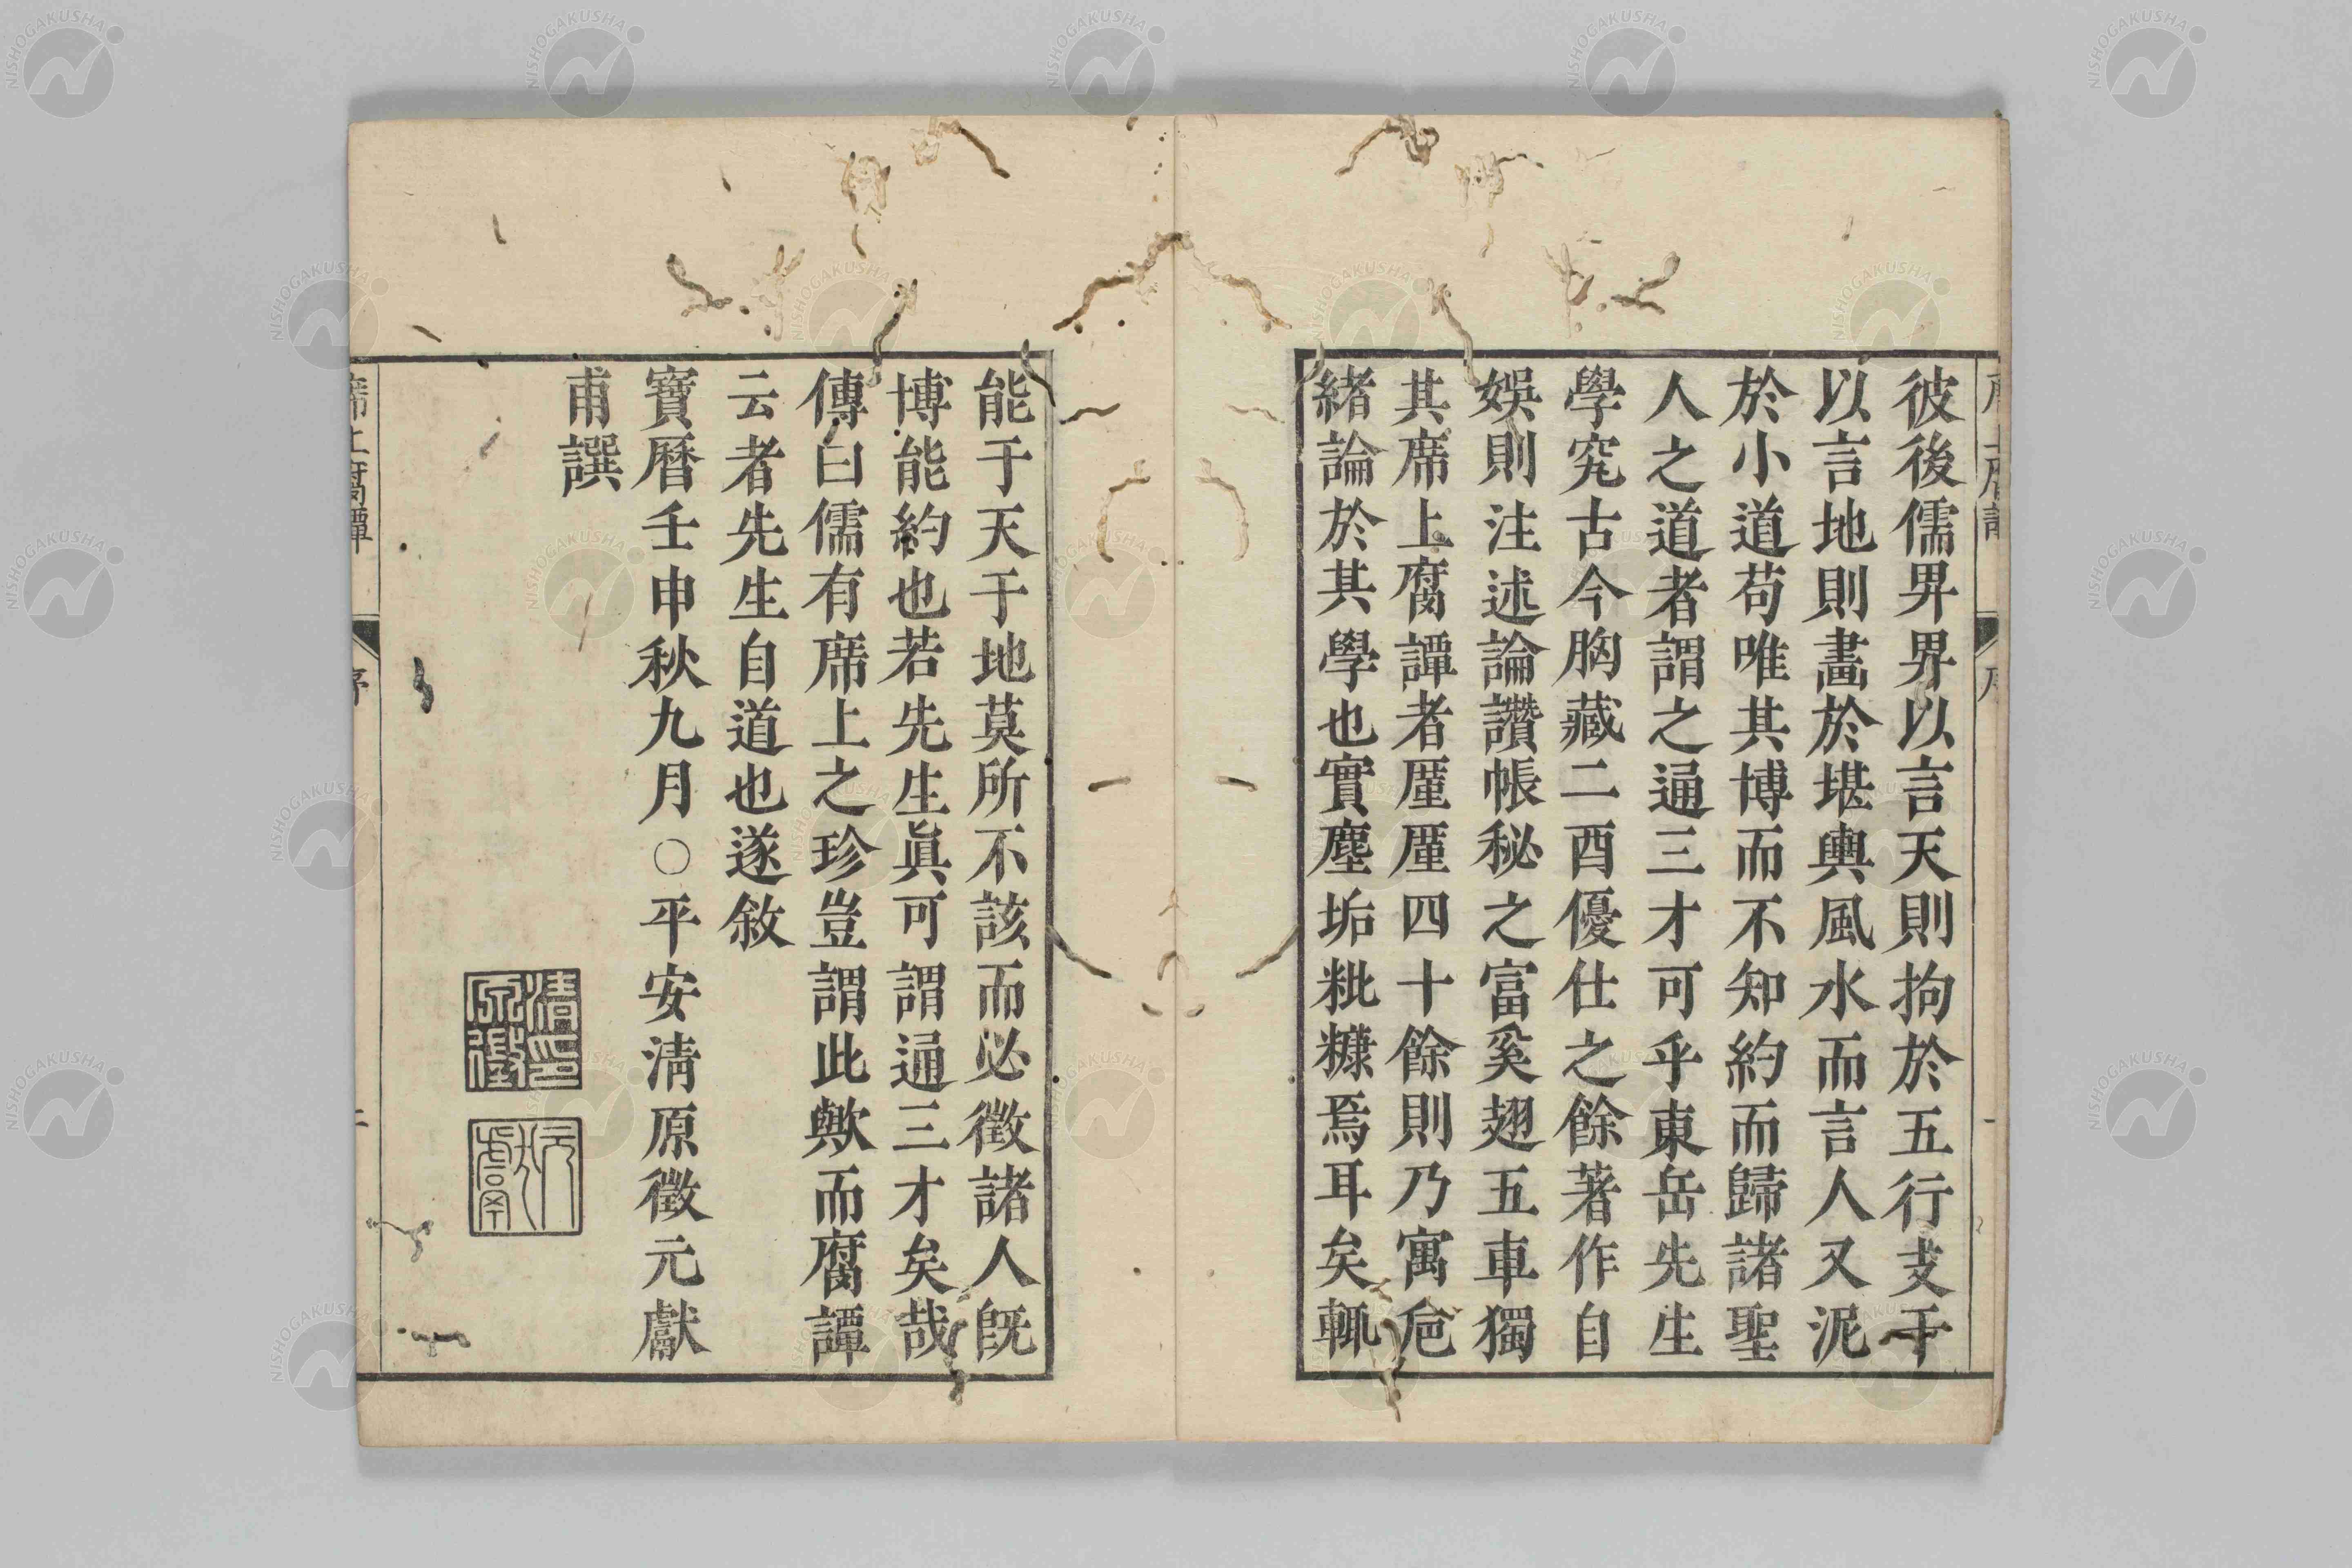 彼後儒界界以言天則拘於五行支干
以言地則畵於堪輿風水而言人又泥
於小道苟唯其博而不知約而歸諸聖
人之道者謂之通三才可乎東岳先生
學究古今胸藏二酉優仕之餘著作自
娯則注述論讚帳秘之富奚翅五車獨
其席上腐譚者厪厪四十餘則乃寓巵
緒論於其學也實塵垢粃糠焉耳矣輒
能于天于地莫所不該而必徴諸人旣
博能約也若先生眞可謂通三才矣哉
傳曰儒有席上之珍豈謂此歟而腐譚
云者先生自道也遂敘
寶曆壬申秋九月○平安淸原徴元獻
甫譔
席上腐譚
序
二
NISHOGAKUSHA